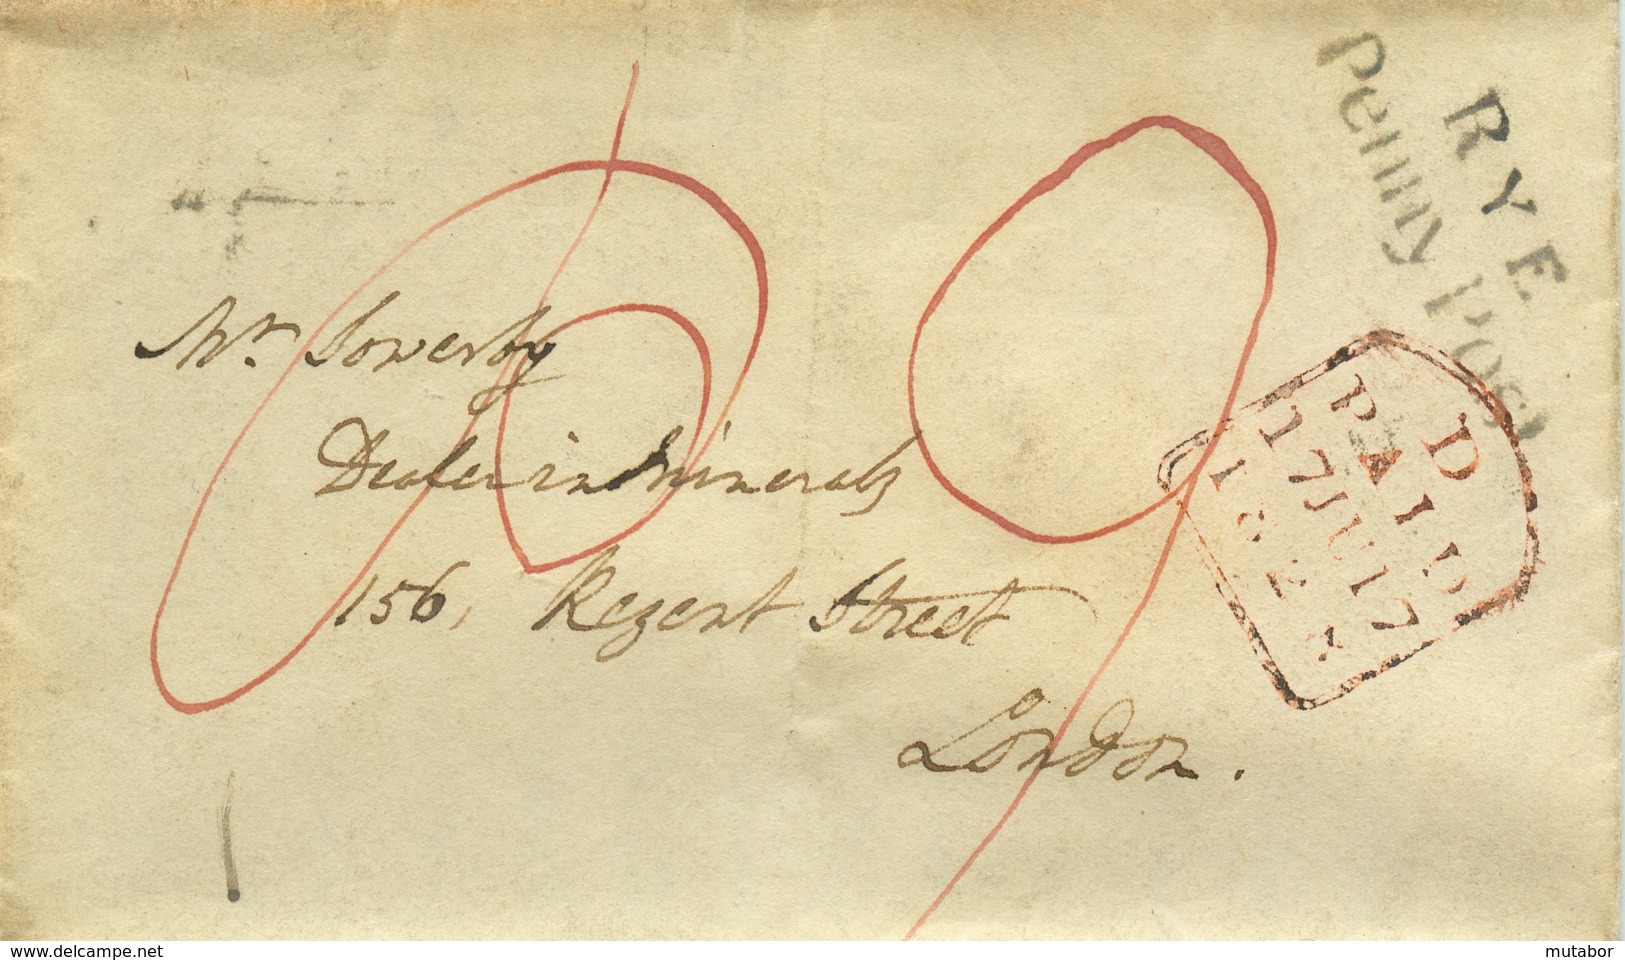 RYE
Penny Post
Mr. Sowerby
Dealer in Minerals
156, Regent Street
London.
9
D
PAID
17 JU 17
www.delcampe.net
mutabor